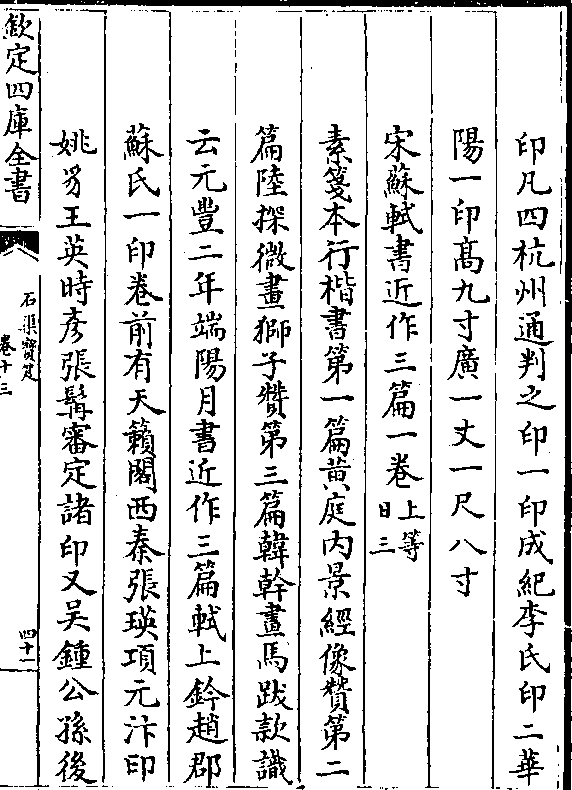 印凡四杭州通判之印一印成紀李氏印二華
陽一印髙九寸廣一丈一尺八寸
宋蘇軾書近作三篇一卷上等日三
素箋本行楷書第一篇黄庭内景經像贊第二
篇陸探微畫獅子贊第三篇韓幹畫馬跋款識
云元豐二年端陽月書近作三篇軾上鈐趙郡
蘇氏一印卷前有天籟閣西秦張瑛項元汴印
姚㫤王英時彦張髯審定諸印又吴鍾公孫後
欽定四庫全書
石渠寶笈
卷十三
四十一